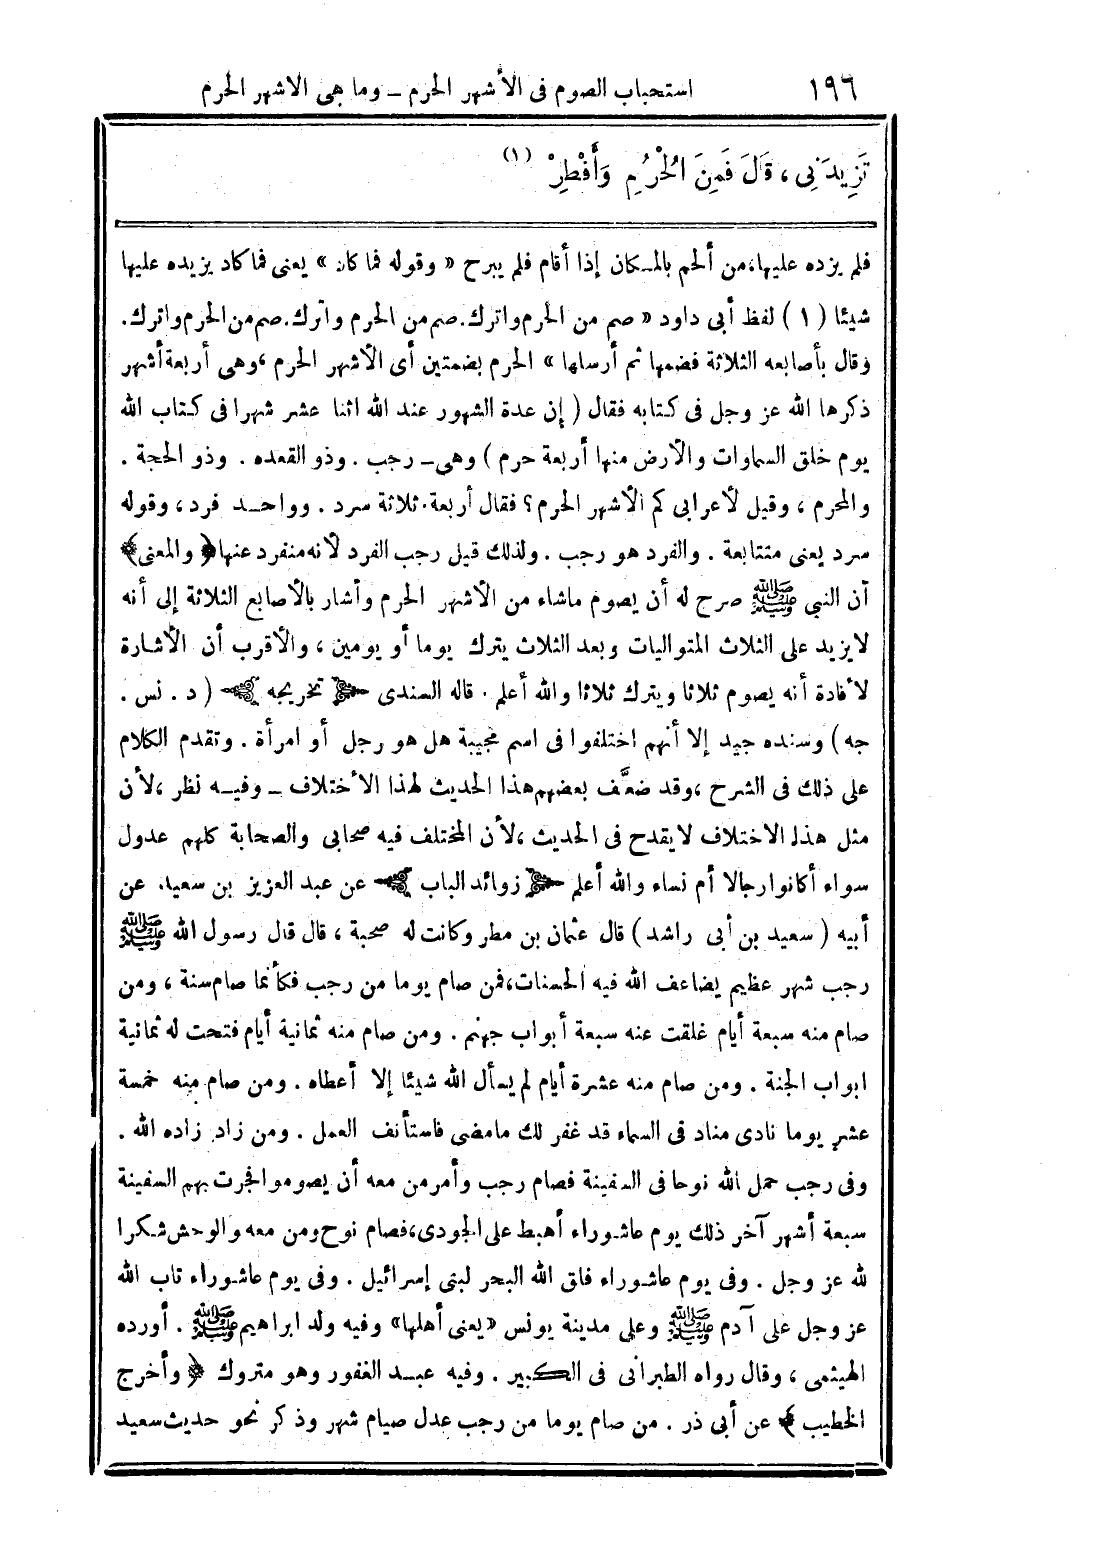 ١٩٦ استحباب الصوم فى الأشهر الحرم ــ وما هى الاشهر الحرم
تَزِيدَنِى ، قَالَ فَمِنَ الْحُرُمِ وَأَفْطِرْ (١)
فلم يزده عليها،من ألحم بالمـكان إذا أقام فلم يبرح « وقوله فما كان » يعنى فما كاد يزيده عليها
شيئا ( ١ ) لفظ أبى داود « صم من الحرم واترك.صم من الحرم واترك.صم من الحرم واترك.
وقال بأصابعه الثلاثة فضمها ثم أرسلها » الحرم بضمتين أى الأشهر الحرم ،وهى أربعة أشهر
ذكرها الله عز وجل فى كتابه فقال ( إن عدة الشهور عند الله اثنا عشر شهرا فى كتاب الله
يوم خلق السماوات والأرض منها أربعة حرم ) وهى ــ رجب . وذو القعده . وذو الحجة .
والمحرم ، وقيل لأعرابى كم الأشهر الحرم؟ فقال أربعة.ثلاثة سرد . وواحـد فرد ، وقوله
سرد يعنى متتابعة . والفرد هو رجب . ولذلك قيل رجب الفرد لأنه منفرد عنها ﴿ والمعنى ﴾
أن النبي ﷺ صرح له أن يصوم ماشاء من الأشهر الحرم وأشار بالأصابع الثلاثة إلى أنه
لايزيد على الثلاث المتواليات وبعد الثلاث يترك يوما أو يومين ، والأقرب أن الأشارة
لأفادة أنه يصوم ثلاثا ويترك ثلاثا والله أعلم . قاله السندى ﴿ تخريجه ﴾ ( د . نس .
جه ) وسنده جيد إلا أنهم اختلفوا فى اسم مجيبة هل هو رجل أو امرأة . وتقدم الكلام
على ذلك فى الشرح ،وقد ضعَّف بعضهم هذا الحديث لهذا الأختلاف ــ وفيـه نظر ،لأن
مثل هذا الاختلاف لايقدح فى الحديث ،لأن المختلف فيه صحابى والصحابة كلهم عدول
سواء أكانوا رجالا أم نساء والله أعلم ﴿ زوائد الباب ﴾ عن عبد العزيز بن سعيد. عن
أبيه ( سعيد بن أبى راشد ) قال عثمان بن مطر وكانت له صحبة ، قال قال رسول الله ﷺ
رجب شهر عظيم يضاعف الله فيه الحسنات،فمن صام يوما من رجب فكأنما صام سنة ، ومن
صام منه سبعة أيام غلقت عنه سبعة أبواب جهنم . ومن صام منه ثمانية أيام فتحت له ثمانية
ابواب الجنة . ومن صام منه عشرة أيام لم يسأل الله شيئا إلا أعطاه . ومن صام منه خمسة
عشر يوما نادى مناد فى السماء قد غفر لك مامضى فاستأنف العمل . ومن زاد زاده الله .
وفى رجب حمل الله نوحا فى السفينة فصام رجب وأمر من معه أن يصوموا فجرت بهم السفينة
سبعة أشهر آخر ذلك يوم عاشوراء أهبط على الجودى،فصام نوح ومن معه والوحش شكرا
لله عز وجل . وفى يوم عاشوراء فلق الله البحر لبنى إسرائيل . وفى يوم عاشوراء تاب الله
عز وجل على آدم ﷺ وعلى مدينة يونس «يعنى أهلها» وفيه ولد ابراهيم ﷺ . أورده
الهيثمى ، وقال رواه الطبرانى فى الكبير . وفيه عبـد الغفور وهو متروك ﴿ وأخرج
الخطيب ﴾ عن أبى ذر . من صام يوما من رجب عدل صيام شهر وذكر نحو حديث سعيد